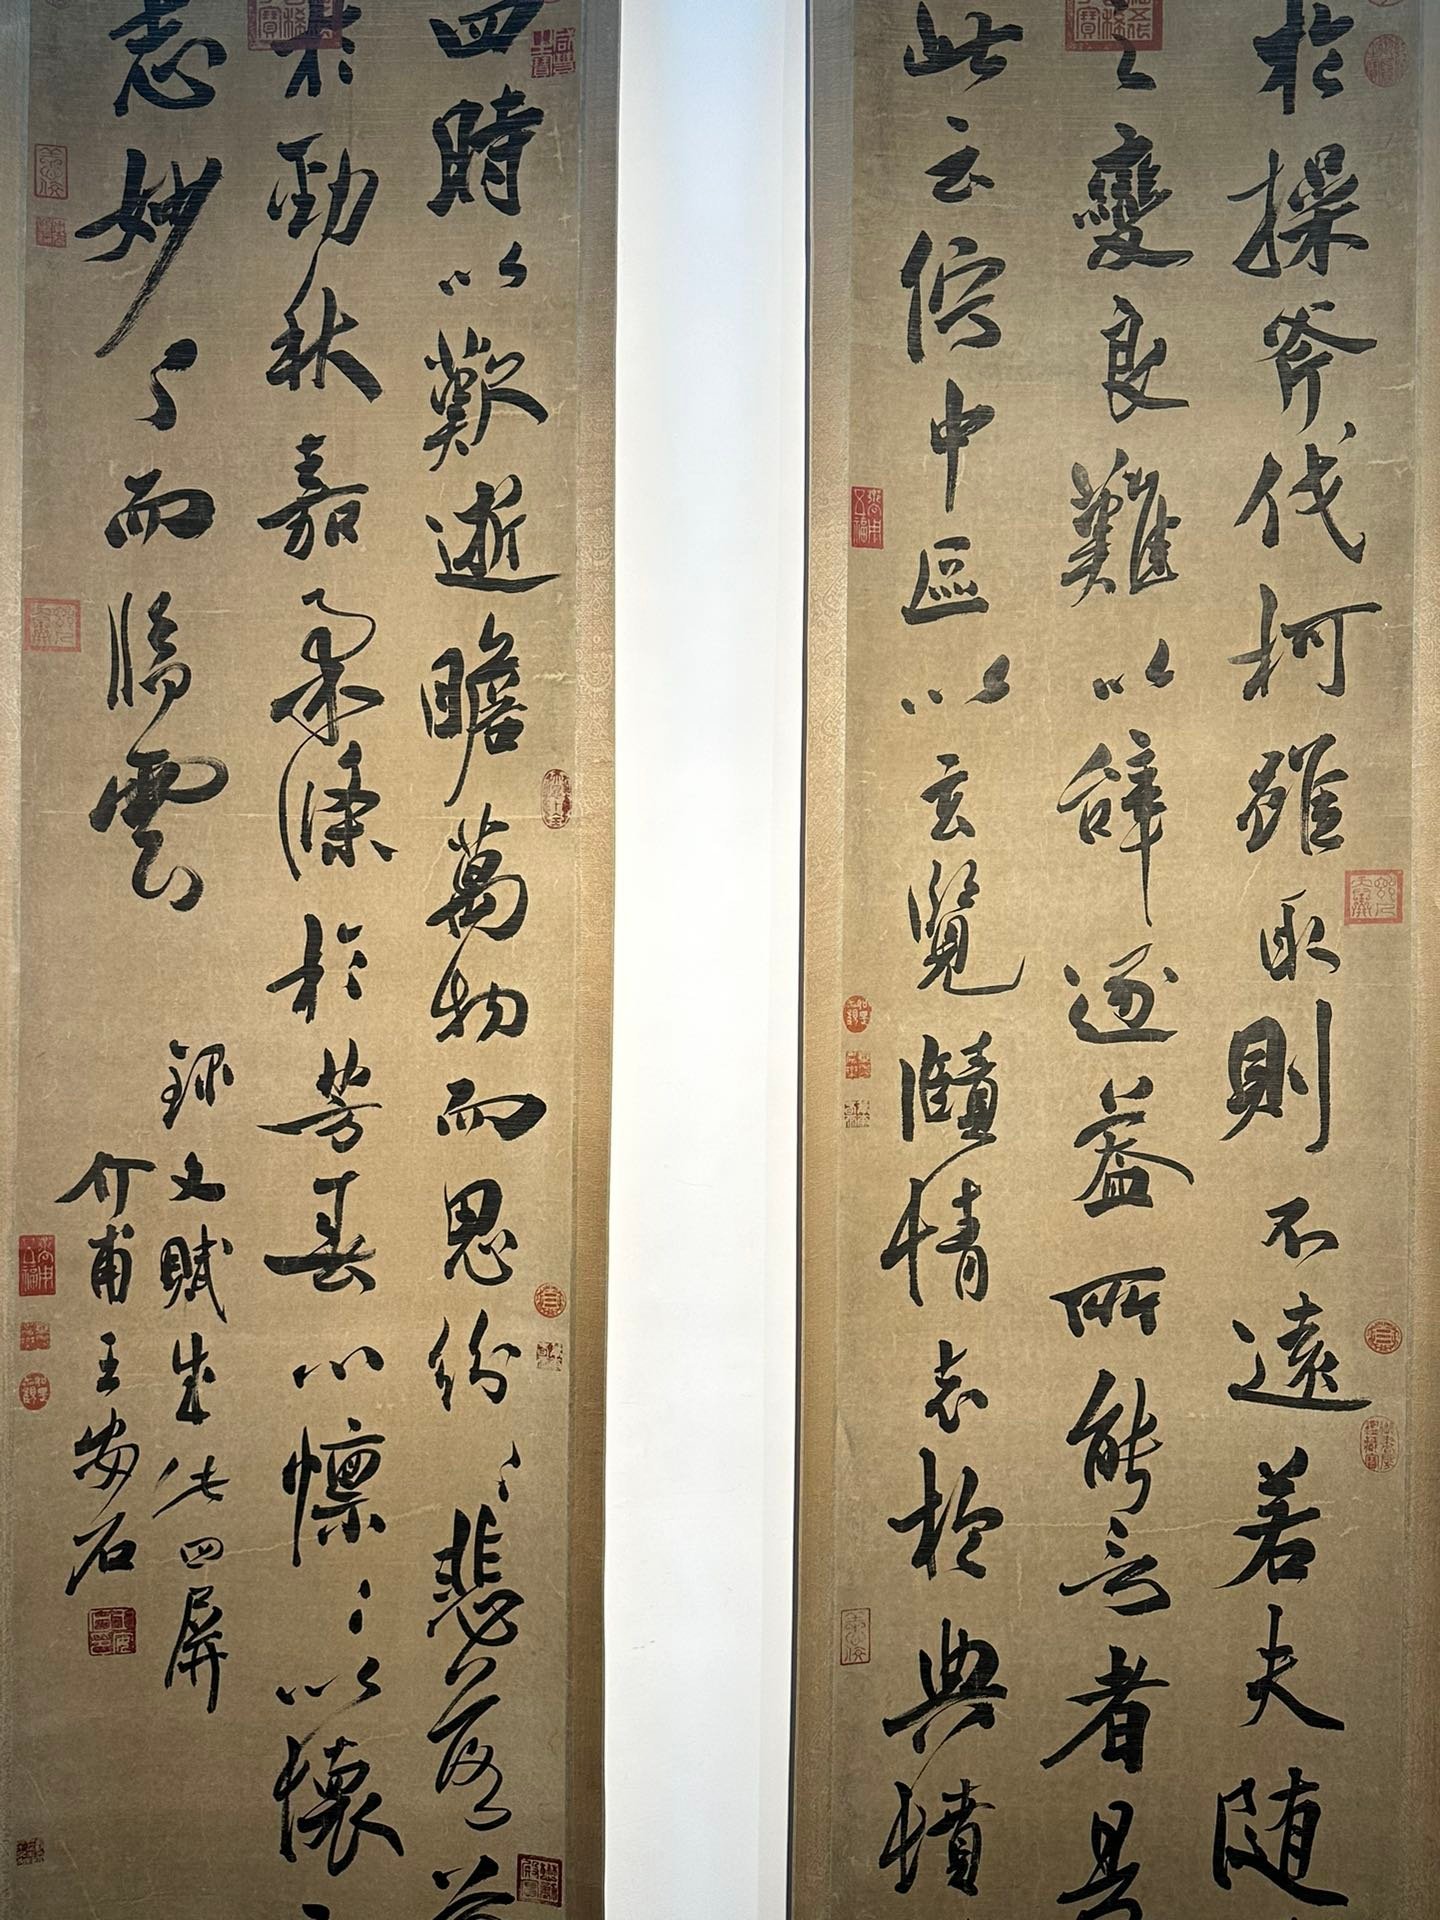 於操斧伐柯雖取則不遠若夫随
之變良難以辞逐蓋所能言者具
此云佇中區以玄覽頤情志於典墳
四時以歎逝瞻萬物而思紛〻悲落葉
於勁秋嘉柔條於芳春心懔〻以懷
志妙〻而臨雲
錄文賦生化四屏
介甫王安石